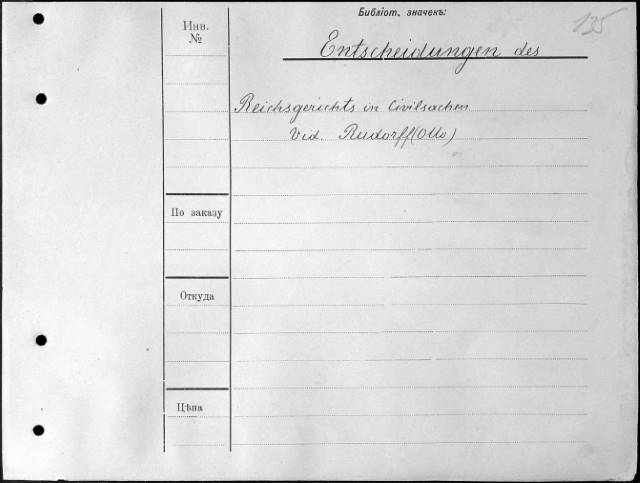 Библіот. значекъ:
135
Инв.
№
Entscheidungen des
Reichsgerichts in Civilsachen
Vid. Rudorff (Otto)
По заказу
Откуда
Цѣна